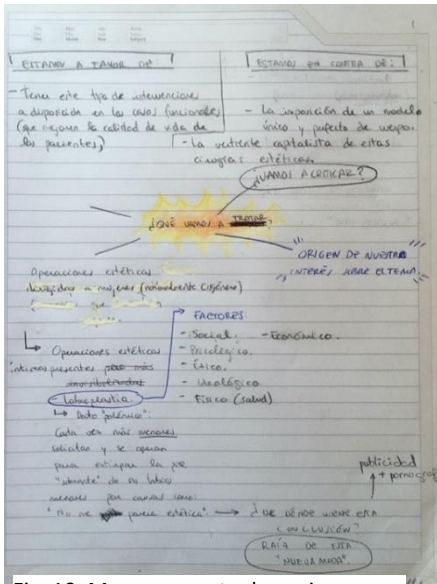 ESTAMOS A FAVOR DE:
- Tener este tipo de intervenciones
a disposición en los casos funcionales
(que mejoren la calidad de vida de
los pacientes)
ESTAMOS EN CONTRA DE:
- La imposición de un modelo
único y perfecto de cuerpo.
- La vertiente capitalista de estas
cirugías estéticas.
¿VAMOS A CRITICAR?
¿QUÉ VAMOS A TRATAR?
ORIGEN DE NUESTRO
INTERÉS SOBRE EL TEMA.
Operaciones estéticas
dirigidas a mujeres (normalmente cisgénero)
Operaciones estéticas
íntimas presentes pero más
invisibilizadas
- Labioplastia.
Dato "polémico":
Cada vez más menores
solicitan y se operan
para extirpar la piel
"sobrante" de sus labios
menores por causas como:
"No me parece estética"
FACTORES:
- Social. - Económico.
- Psicológico.
- Ético.
- Ideológico.
- Físico (salud)
publicidad
+
¿DE DÓNDE VIENE ESTA
CONCLUSIÓN?
RAÍZ DE ESTA
"NUEVA MODA".